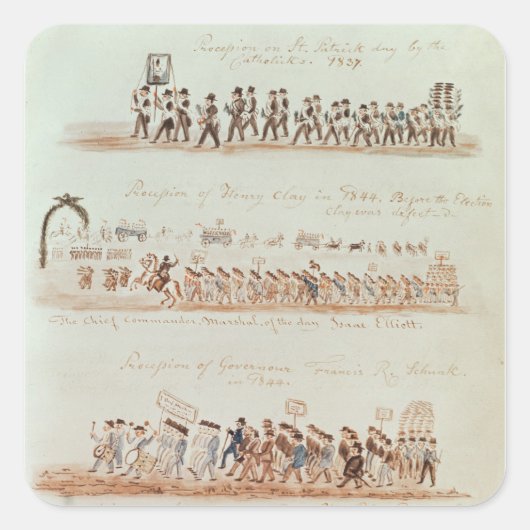 Procession on St. Patrick day by the
Catholicks. 1837.
Procession of Henry Clay in 1844. Before the Election
Clay was defect-d-
The Chief Commander, Marshal, of the day Isaac Elliott.
Procession of Governour Francis R. Schunk.
in 1844.